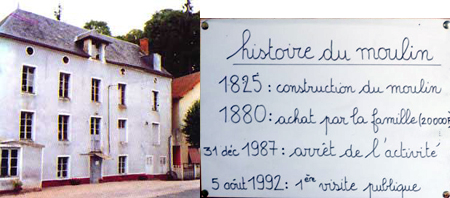 histoire du moulin
1825 : construction du moulin
1880 : achat par la famille (20000F)
31 déc 1987 : arrêt de l'activité
5 août 1992 : 1ère visite publique